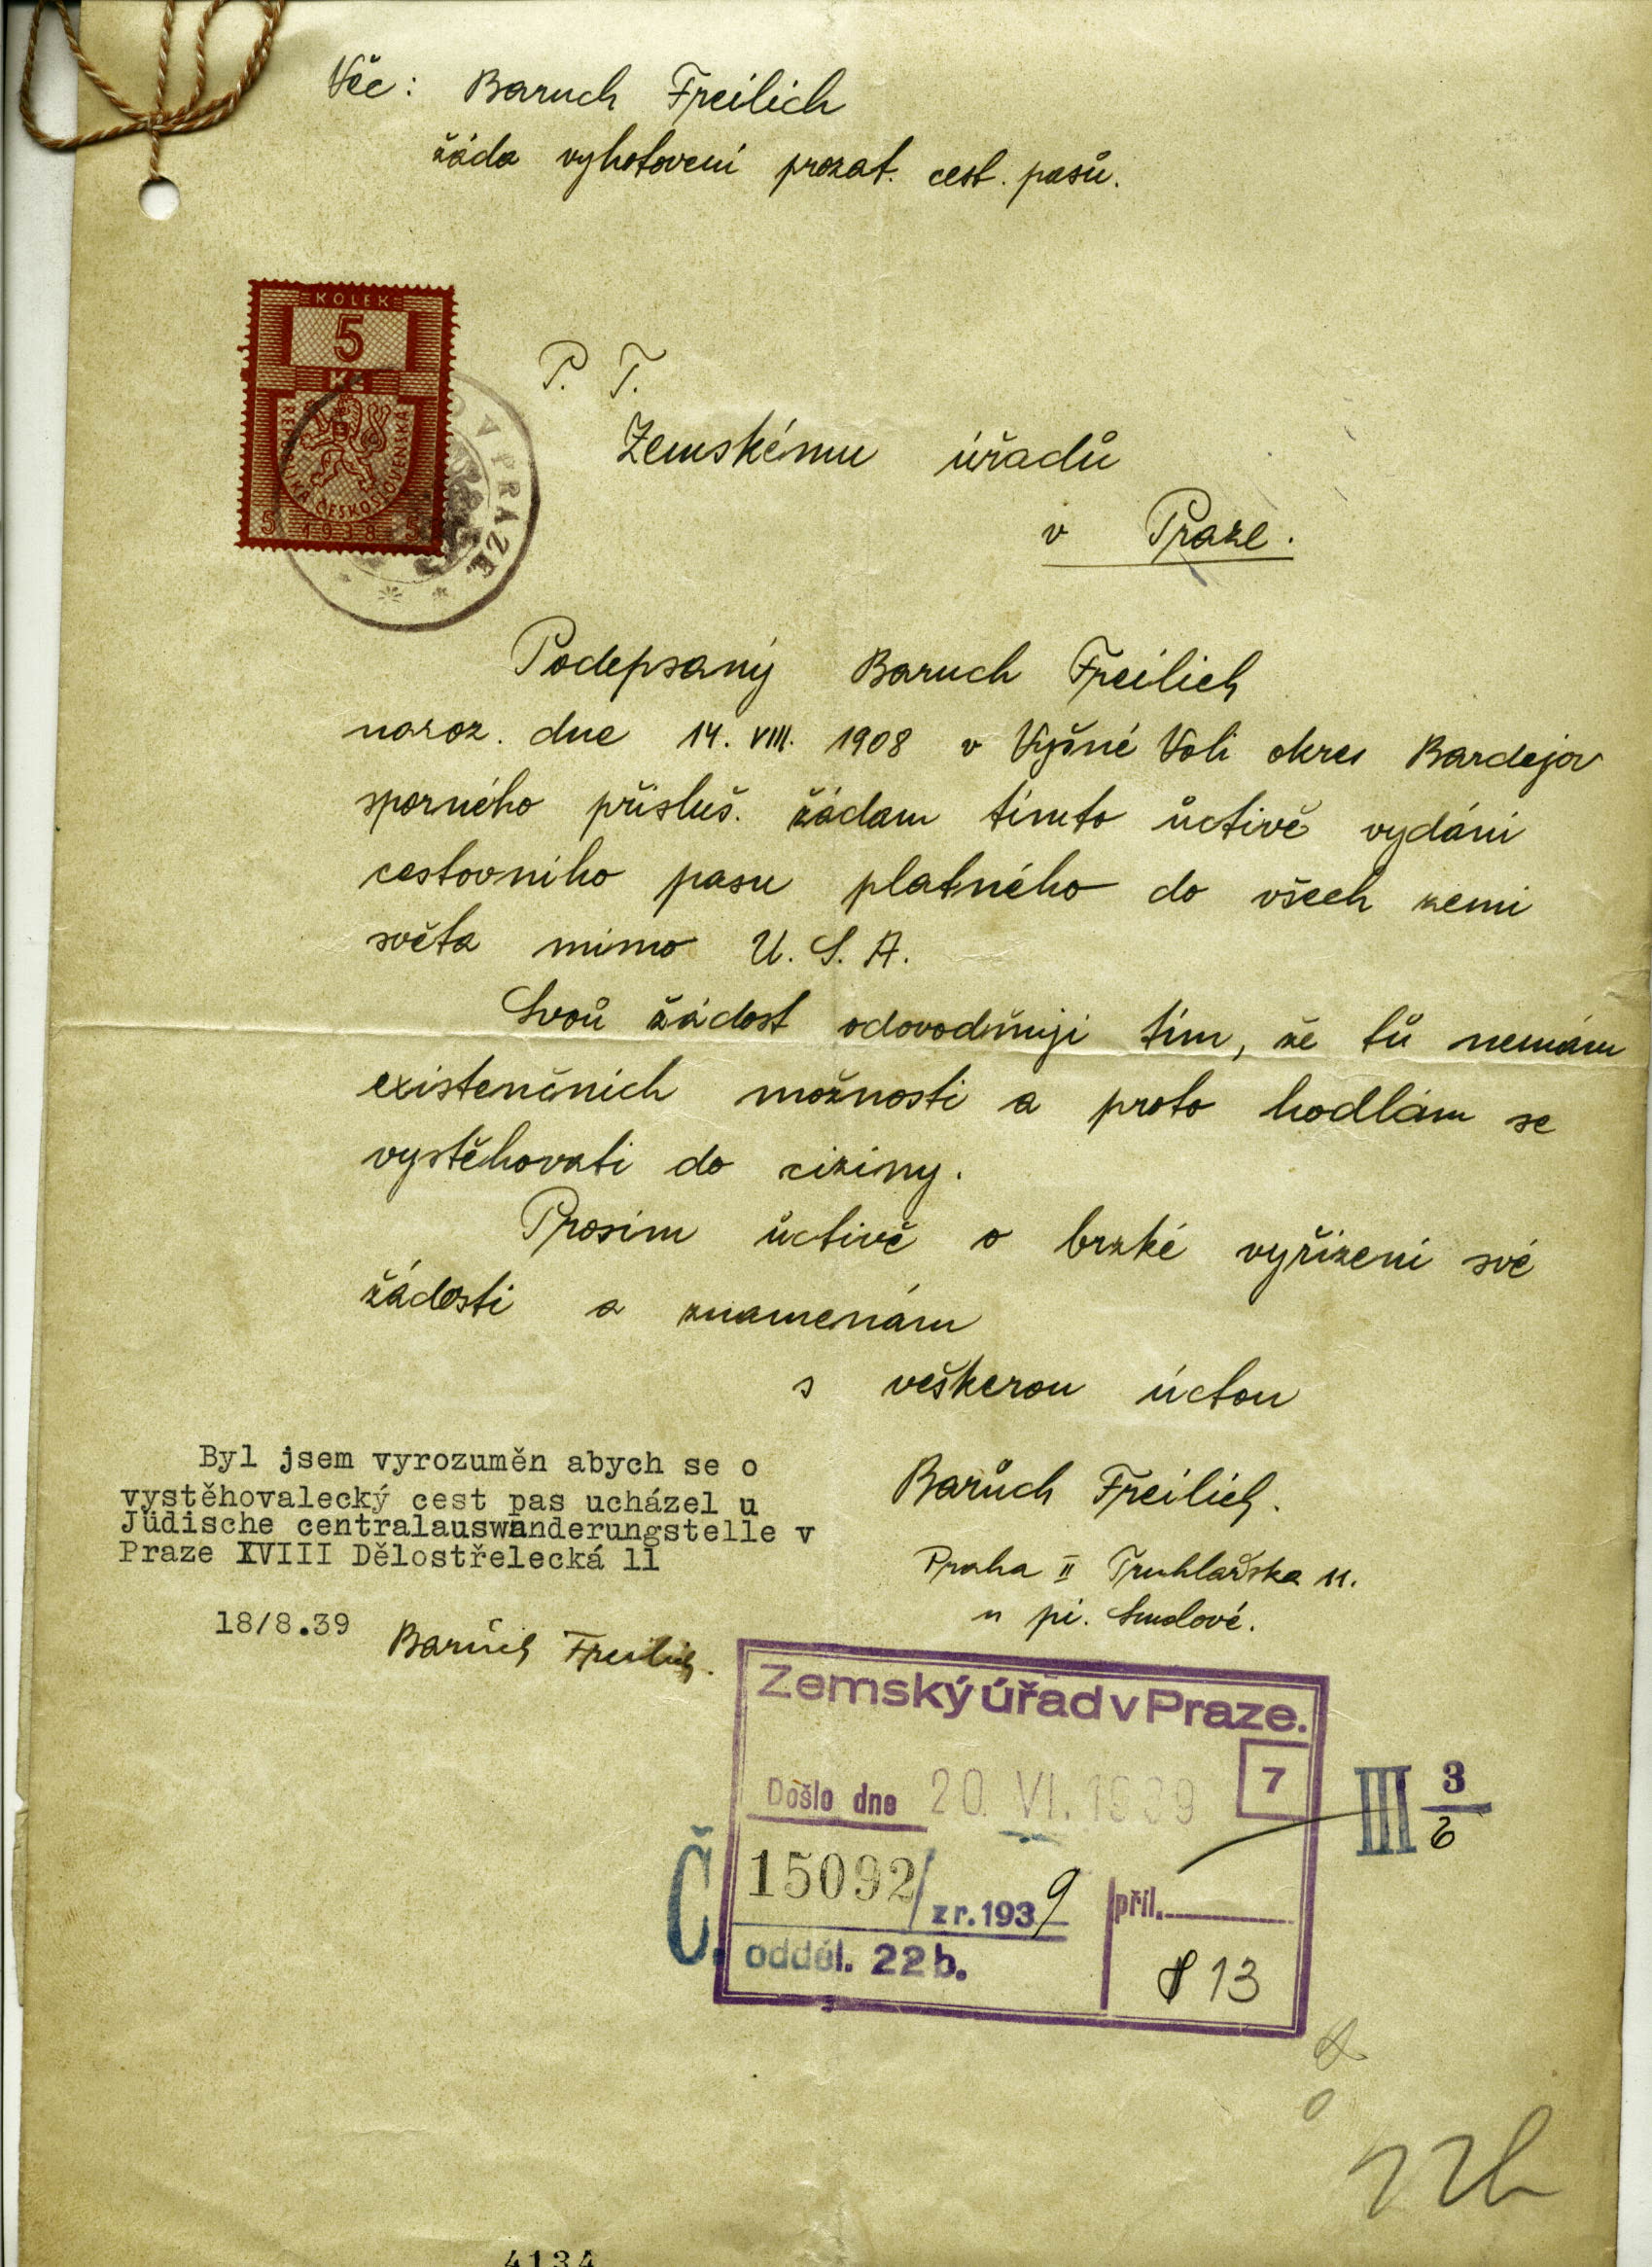 Věc: Baruch Freilich
žáda vyhotovení prozat. cest. pasů.
KOLEK
5
Kč
REPUBLIKA ČESKOSLOVENSKÁ
5 1938 5
V PRAZE
P. T.
Zemskému úřadů
v Praze.
Podepsaný Baruch Freilich
naroz. dne 14. VIII. 1908 v Vyšné Voli okres Bardejov
sporného přísluš. žádam tímto ůctivě vydání
cestovního pasu platného do všech zemí
světa mimo U. S. A.
Svoů žádost odovodňuji tím, že tů nemám
existenčních možnosti a proto hodlám se
vystěhovati do ciziny.
Prosím ůctivě o brzké vyřízení své
žádosti a znamenám
s veškerou úctou
Barůch Freilich.
Praha II Truhlařska 11.
u pí. Smolové.
Byl jsem vyrozuměn abych se o
vystěhovalecký cest pas ucházel u
Jüdische centralauswanderungstelle v
Praze XVIII Dělostřelecká 11
18/8.39 Barůch Freilich.
Zemský úřad v Praze.
7
Došlo dne 20. VI. 1939
III 3/6
Č. 15092/zr.1939
příl.
odděl. 22b.
13
4134